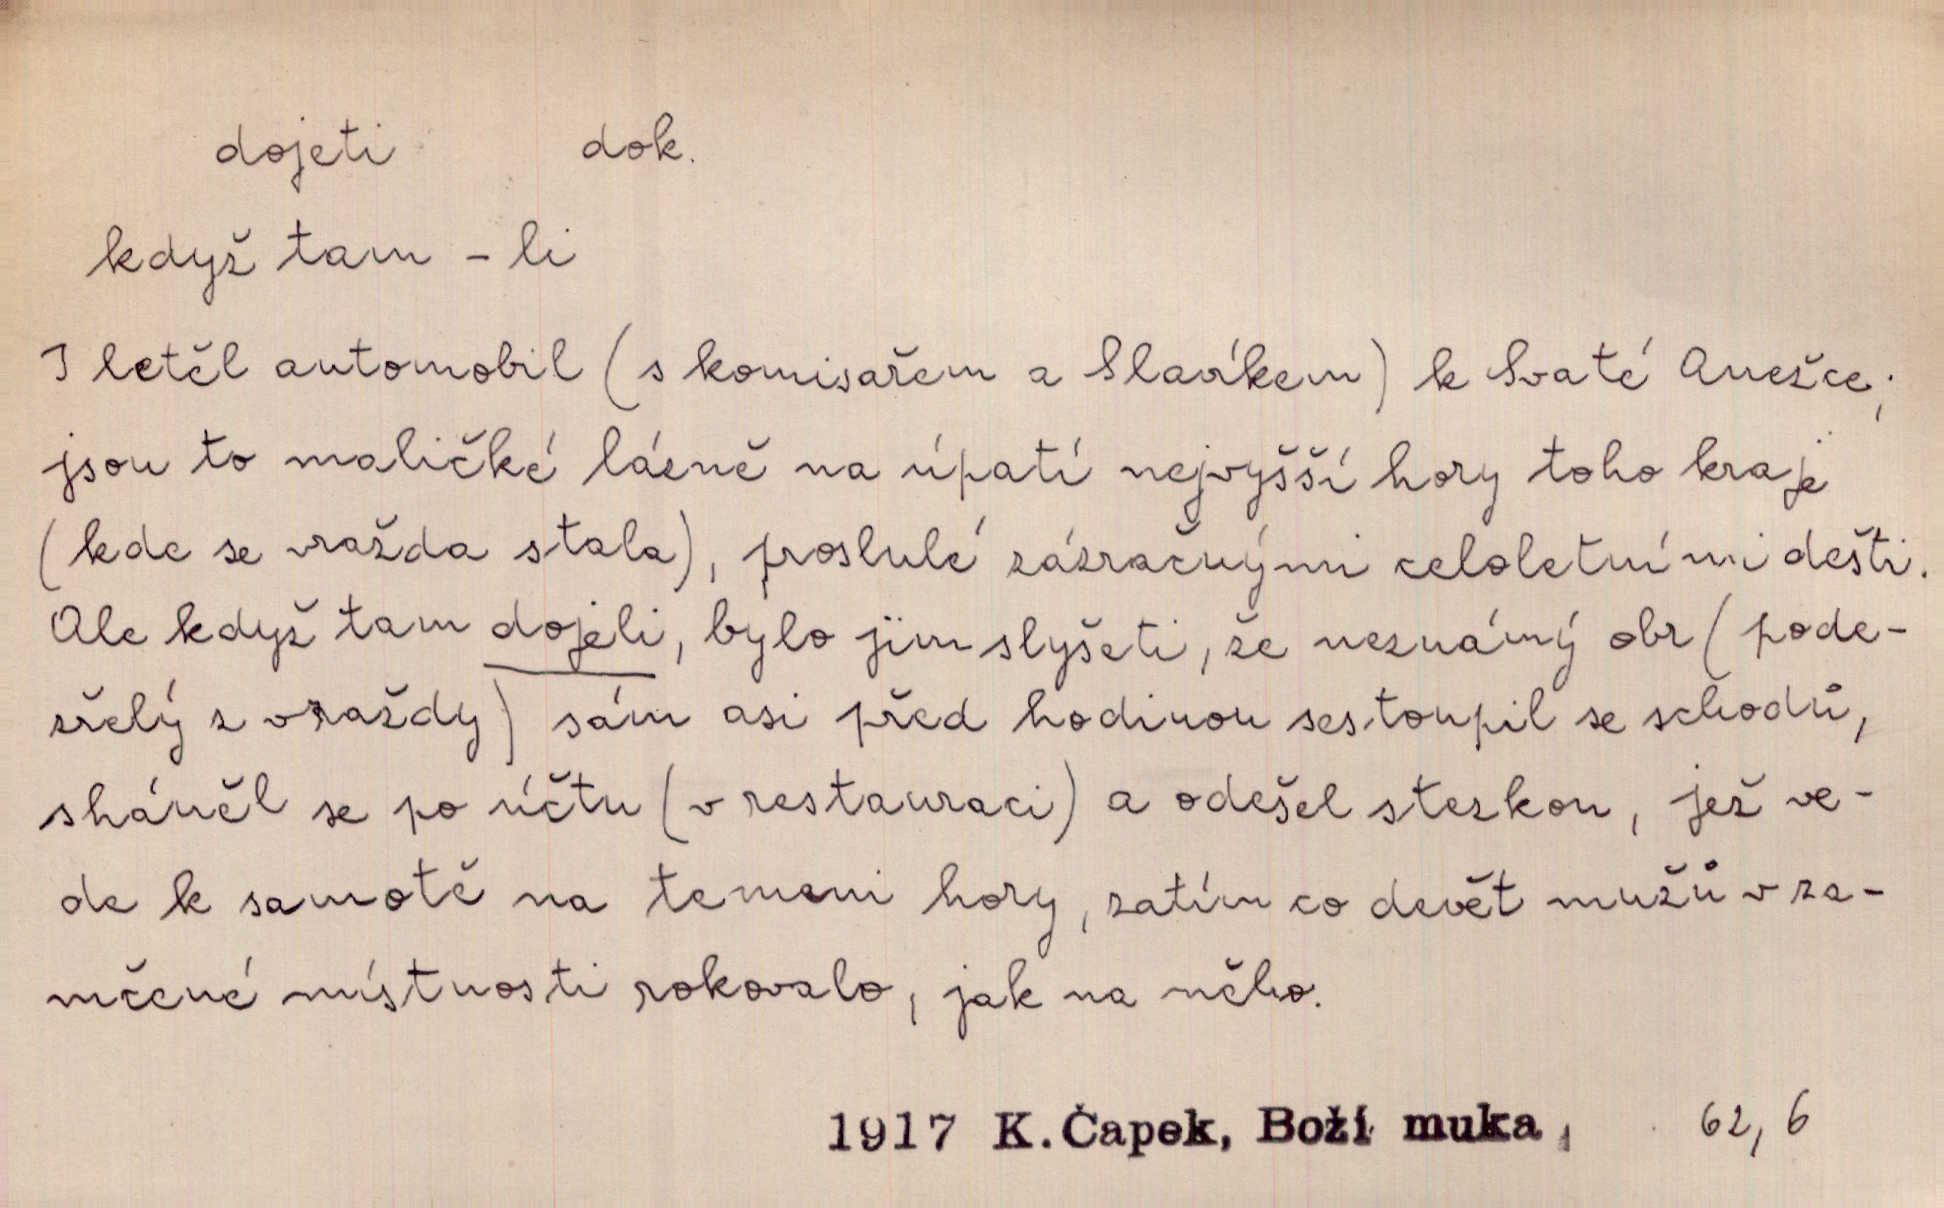 dojeti dok.
když tam – li
I letěl automobil (s komisařem a Slavíkem) k Svaté Anežce;
jsou to maličké lázně na úpatí nejvyšší hory toho kraje
(kde se vražda stala), proslulé zázračnými celoletními dešti.
Ale když tam dojeli, bylo jim slyšeti, že neznámý obr (pode-
zřelý z vraždy) sám asi před hodinou sestoupil se schodů,
sháněl se po účtu (v restauraci) a odešel stezkou, jež ve-
de k samotě na temeni hory, zatím co devět mužů v za-
mčené místnosti rokovalo, jak na něho.
1917 K. Čapek, Boží muka, 62, 6